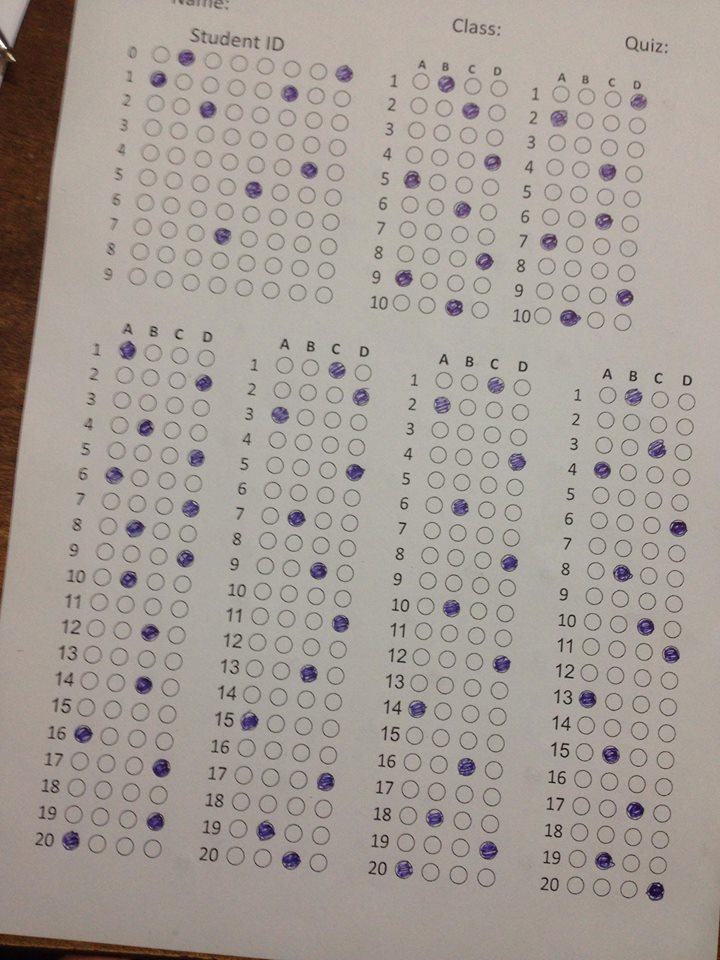 Name:
Student ID Class: Quiz:
0
1
2
3
4
5
6
7
8
9
A B C D
1
2
3
4
5
6
7
8
9
10
A B C D
1
2
3
4
5
6
7
8
9
10
A B C D
1
2
3
4
5
6
7
8
9
10
11
12
13
14
15
16
17
18
19
20
A B C D
1
2
3
4
5
6
7
8
9
10
11
12
13
14
15
16
17
18
19
20
A B C D
1
2
3
4
5
6
7
8
9
10
11
12
13
14
15
16
17
18
19
20
A B C D
1
2
3
4
5
6
7
8
9
10
11
12
13
14
15
16
17
18
19
20